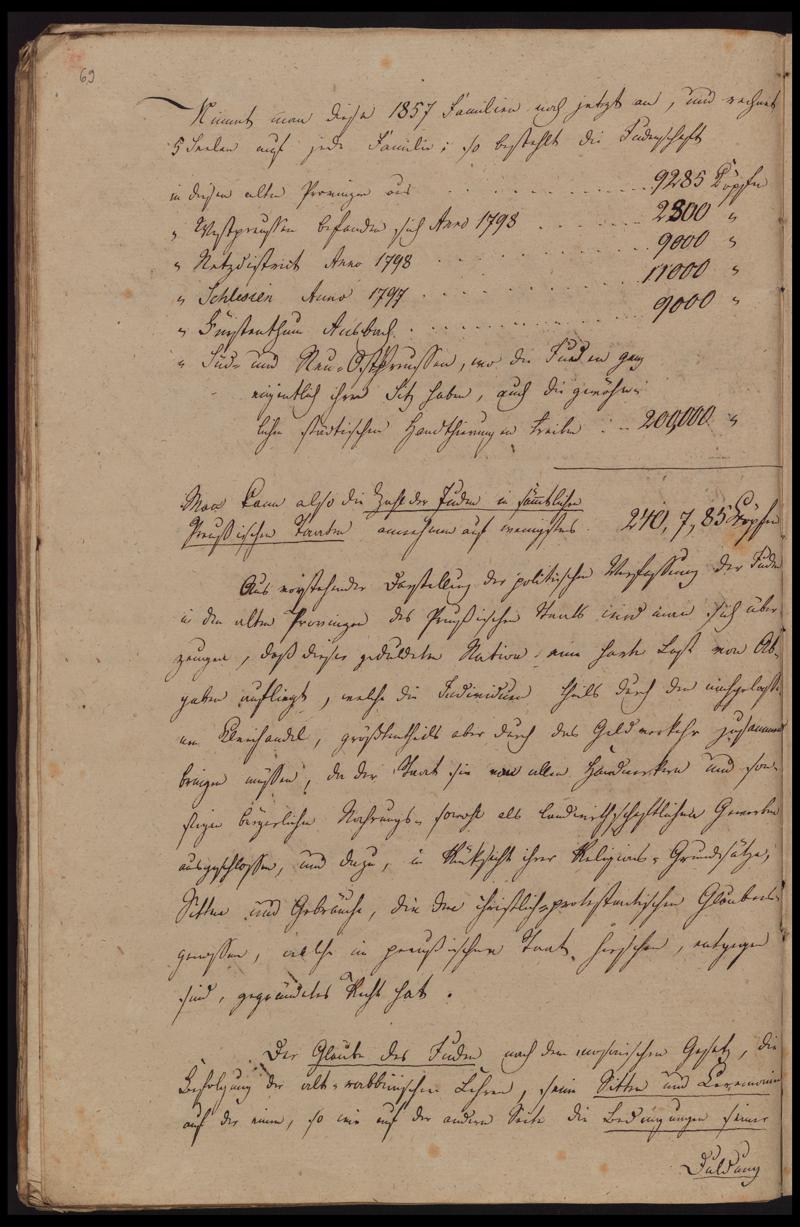 69
Nimmt man diese 1857 Familien noch jetzt an, und rechnet
5 Seelen auf jede Familie; so bestehet die Judenschaft
in diesen alten Provinzen aus . . . . . . . . 9285 Köpfen
" Westpreussen befanden sich Anno 1798 . . . . . . 2300 "
" Netzdistrict Anno 1798 . . . . . . . . . 9000 "
" Schlesien Anno 1797 . . . . . . . . . . 11000 "
" Fürstenthum Ansbach . . . . . . . . . . 9000 "
" Süd- und Neu-OstPreussen, wo die Juden ganz
eigentlich ihren Sitz haben, auch die gewöhn-
lichen städtischen Handthierungen treiben . . . 200,000 "
Man kann also die Zahl der Juden in sämtlichen
Preußischen Staaten annehmen auf wenigstens 240,7,85 Köpfen
Aus vorstehender Darstellung der politischen Verfassung der Juden
in den alten Provinzen des Preußischen Staats wird man sich über-
zeugen, daß dieser geduldeten Nation eine harte Last von Ab-
gaben aufliegt, welche die Individuen theils durch den nachgelasse-
nen Kleinhandel, größtentheils aber durch das Geldverkehr zusammen
bringen müssen, da der Staat sie von allen Handwerken und son-
stigen bürgerlichen Nahrungs- sowohl als landwirthschaftlichen Gewerben
ausgeschlossen, und dazu, in Rüksicht ihrer Religions-Grundsätze,
Sitten und Gebräuche, die den christlich-protestantischen Glaubens-
genossen, welche im preußischen Staat herschen, entgegen
sind, gegründetes Recht hat.
Der Glaube des Juden nach dem mosaischen Gesetz, die
Befolgung der alt-rabbinischen Lehren, seine Sitten und Ceremonien
auf der einen, so wie auf der andern Seite die Bedingungen seiner
Duldung